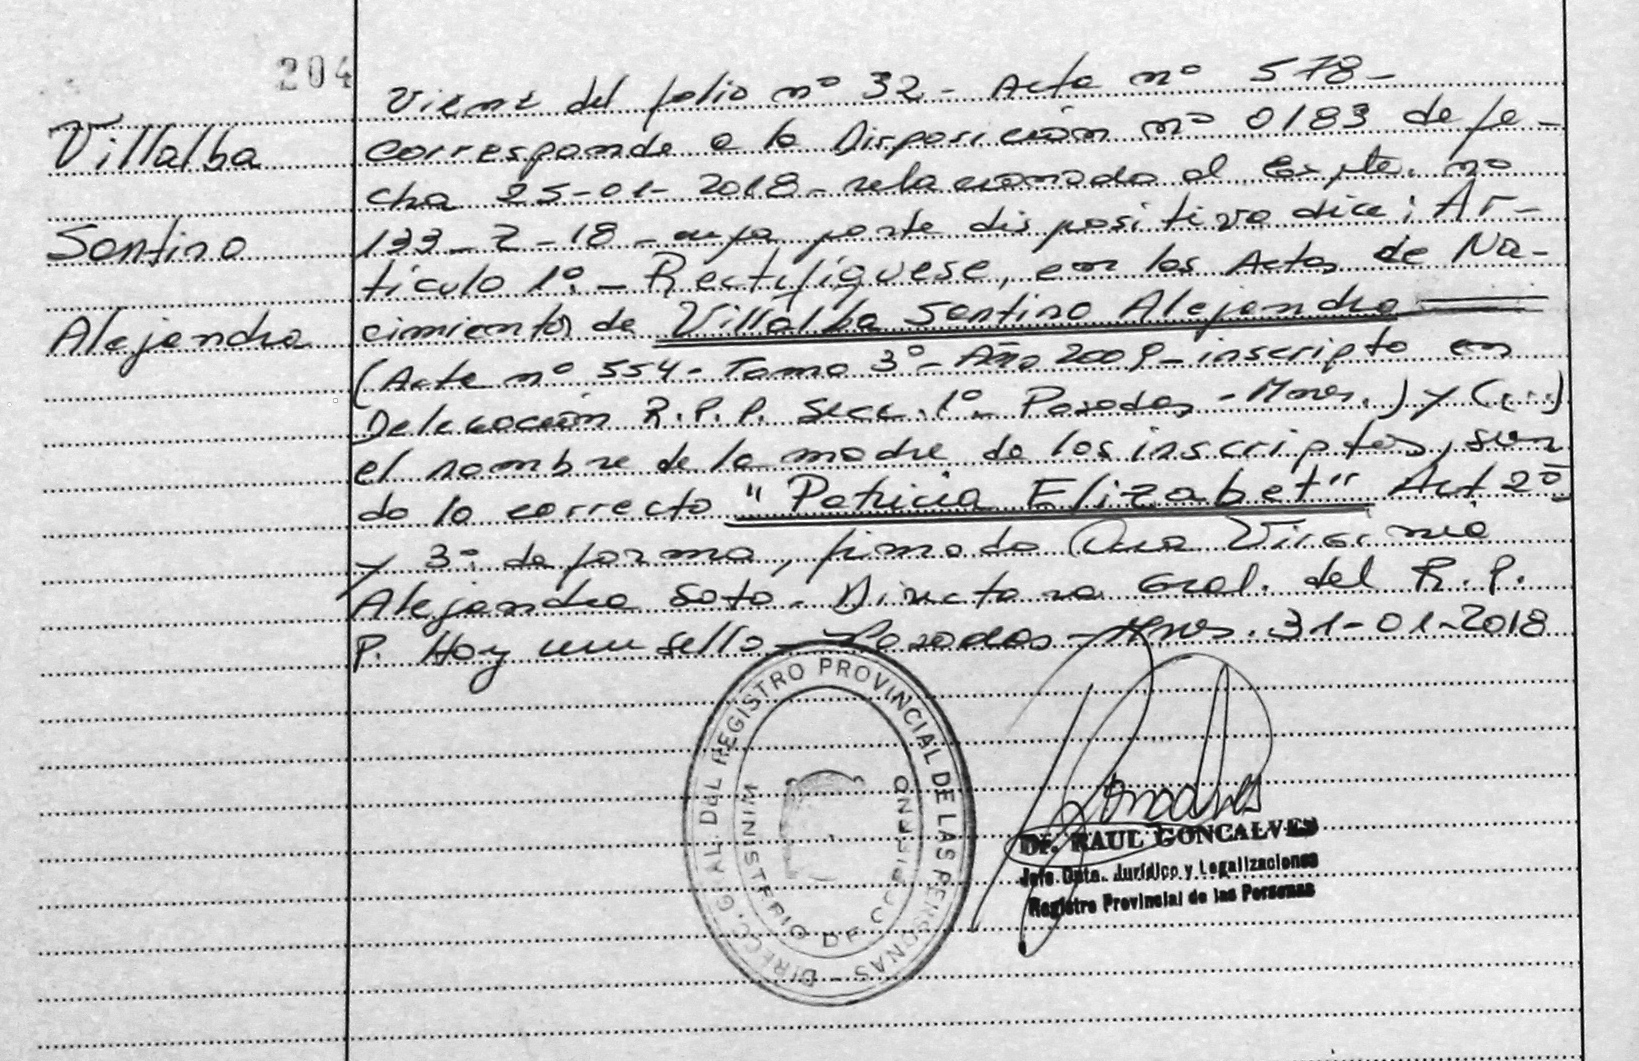 204
Villalba
Santino
Alejandro
Viene del folio nº 32 - Acta nº 578 -
corresponde a la Disposición nº 0183 de fe-
cha 25-01-2018 - relacionada al Expte. nº
133 - Z - 18 - cuya parte dispositiva dice: Ar-
tículo 1º. - Rectifíquese, en las Actas de Na-
cimientos de Villalba Santino Alejandro
(Acta nº 554 - Tomo 3º - Año 2009 - inscripto en
Delegación R.P.P. Secc. 1º Posadas - Mnes.) y (...)
el nombre de la madre de los inscriptos, sien
do lo correcto "Patricia Elizabet" Art 2º
y 3º de forma, firmado Dra Virginia
Alejandra Soto. Directora Gral. del R. P.
P. Hay un sello - Posadas - Mnes. 31-01-2018
DIRECC. GRAL. DEL REGISTRO PROVINCIAL DE LAS PERSONAS -
MINISTERIO DE GOBIERNO
Dr. RAUL GONCALVES
Jefe Dpto. Jurídico y Legalizaciones
Registro Provincial de las Personas